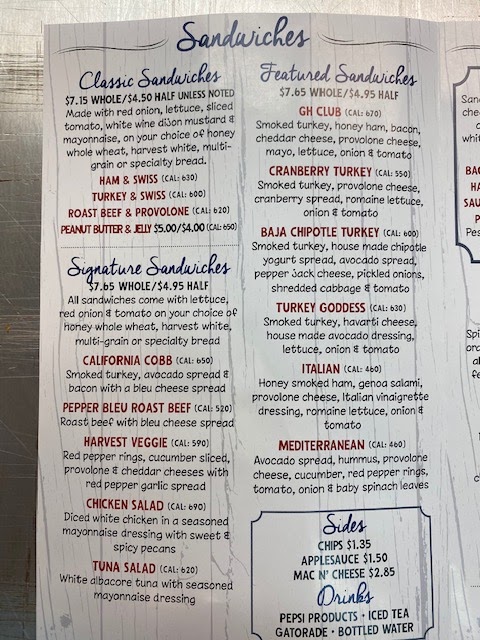 Sandwiches
Classic Sandwiches
$7.15 WHOLE/$4.50 HALF UNLESS NOTED
Made with red onion, lettuce, sliced
tomato, white wine dijon mustard &
mayonnaise, on your choice of honey
whole wheat, harvest white, multi-
grain or specialty bread.
HAM & SWISS (CAL: 630)
TURKEY & SWISS (CAL: 600)
ROAST BEEF & PROVOLONE (CAL: 620)
PEANUT BUTTER & JELLY $5.00/$4.00 (CAL: 650)
Signature Sandwiches
$7.65 WHOLE/$4.95 HALF
All sandwiches come with lettuce,
red onion & tomato on your choice of
honey whole wheat, harvest white,
multi-grain or specialty bread
CALIFORNIA COBB (CAL: 650)
Smoked turkey, avocado spread &
bacon with a bleu cheese spread
PEPPER BLEU ROAST BEEF (CAL: 520)
Roast beef with bleu cheese spread
HARVEST VEGGIE (CAL: 590)
Red pepper rings, cucumber sliced,
provolone & cheddar cheeses with
red pepper garlic spread
CHICKEN SALAD (CAL: 690)
Diced white chicken in a seasoned
mayonnaise dressing with sweet &
spicy pecans
TUNA SALAD (CAL: 620)
White albacore tuna with seasoned
mayonnaise dressing
Featured Sandwiches
$7.65 WHOLE/$4.95 HALF
GH CLUB (CAL: 670)
Smoked turkey, honey ham, bacon,
cheddar cheese, provolone cheese,
mayo, lettuce, onion & tomato
CRANBERRY TURKEY (CAL: 550)
Smoked turkey, provolone cheese,
cranberry spread, romaine lettuce,
onion & tomato
BAJA CHIPOTLE TURKEY (CAL: 600)
Smoked turkey, house made chipotle
yogurt spread, avocado spread,
pepper jack cheese, pickled onions,
shredded cabbage & tomato
TURKEY GODDESS (CAL: 630)
Smoked turkey, havarti cheese,
house made avocado dressing,
lettuce, onion & tomato
ITALIAN (CAL: 460)
Honey smoked ham, genoa salami,
provolone cheese, Italian vinaigrette
dressing, romaine lettuce, onion &
tomato
MEDITERRANEAN (CAL: 460)
Avocado spread, hummus, provolone
cheese, cucumber, red pepper rings,
tomato, onion & baby spinach leaves
Sides
CHIPS $1.35
APPLESAUCE $1.50
MAC N' CHEESE $2.85
Drinks
PEPSI PRODUCTS • ICED TEA
GATORADE • BOTTLED WATER